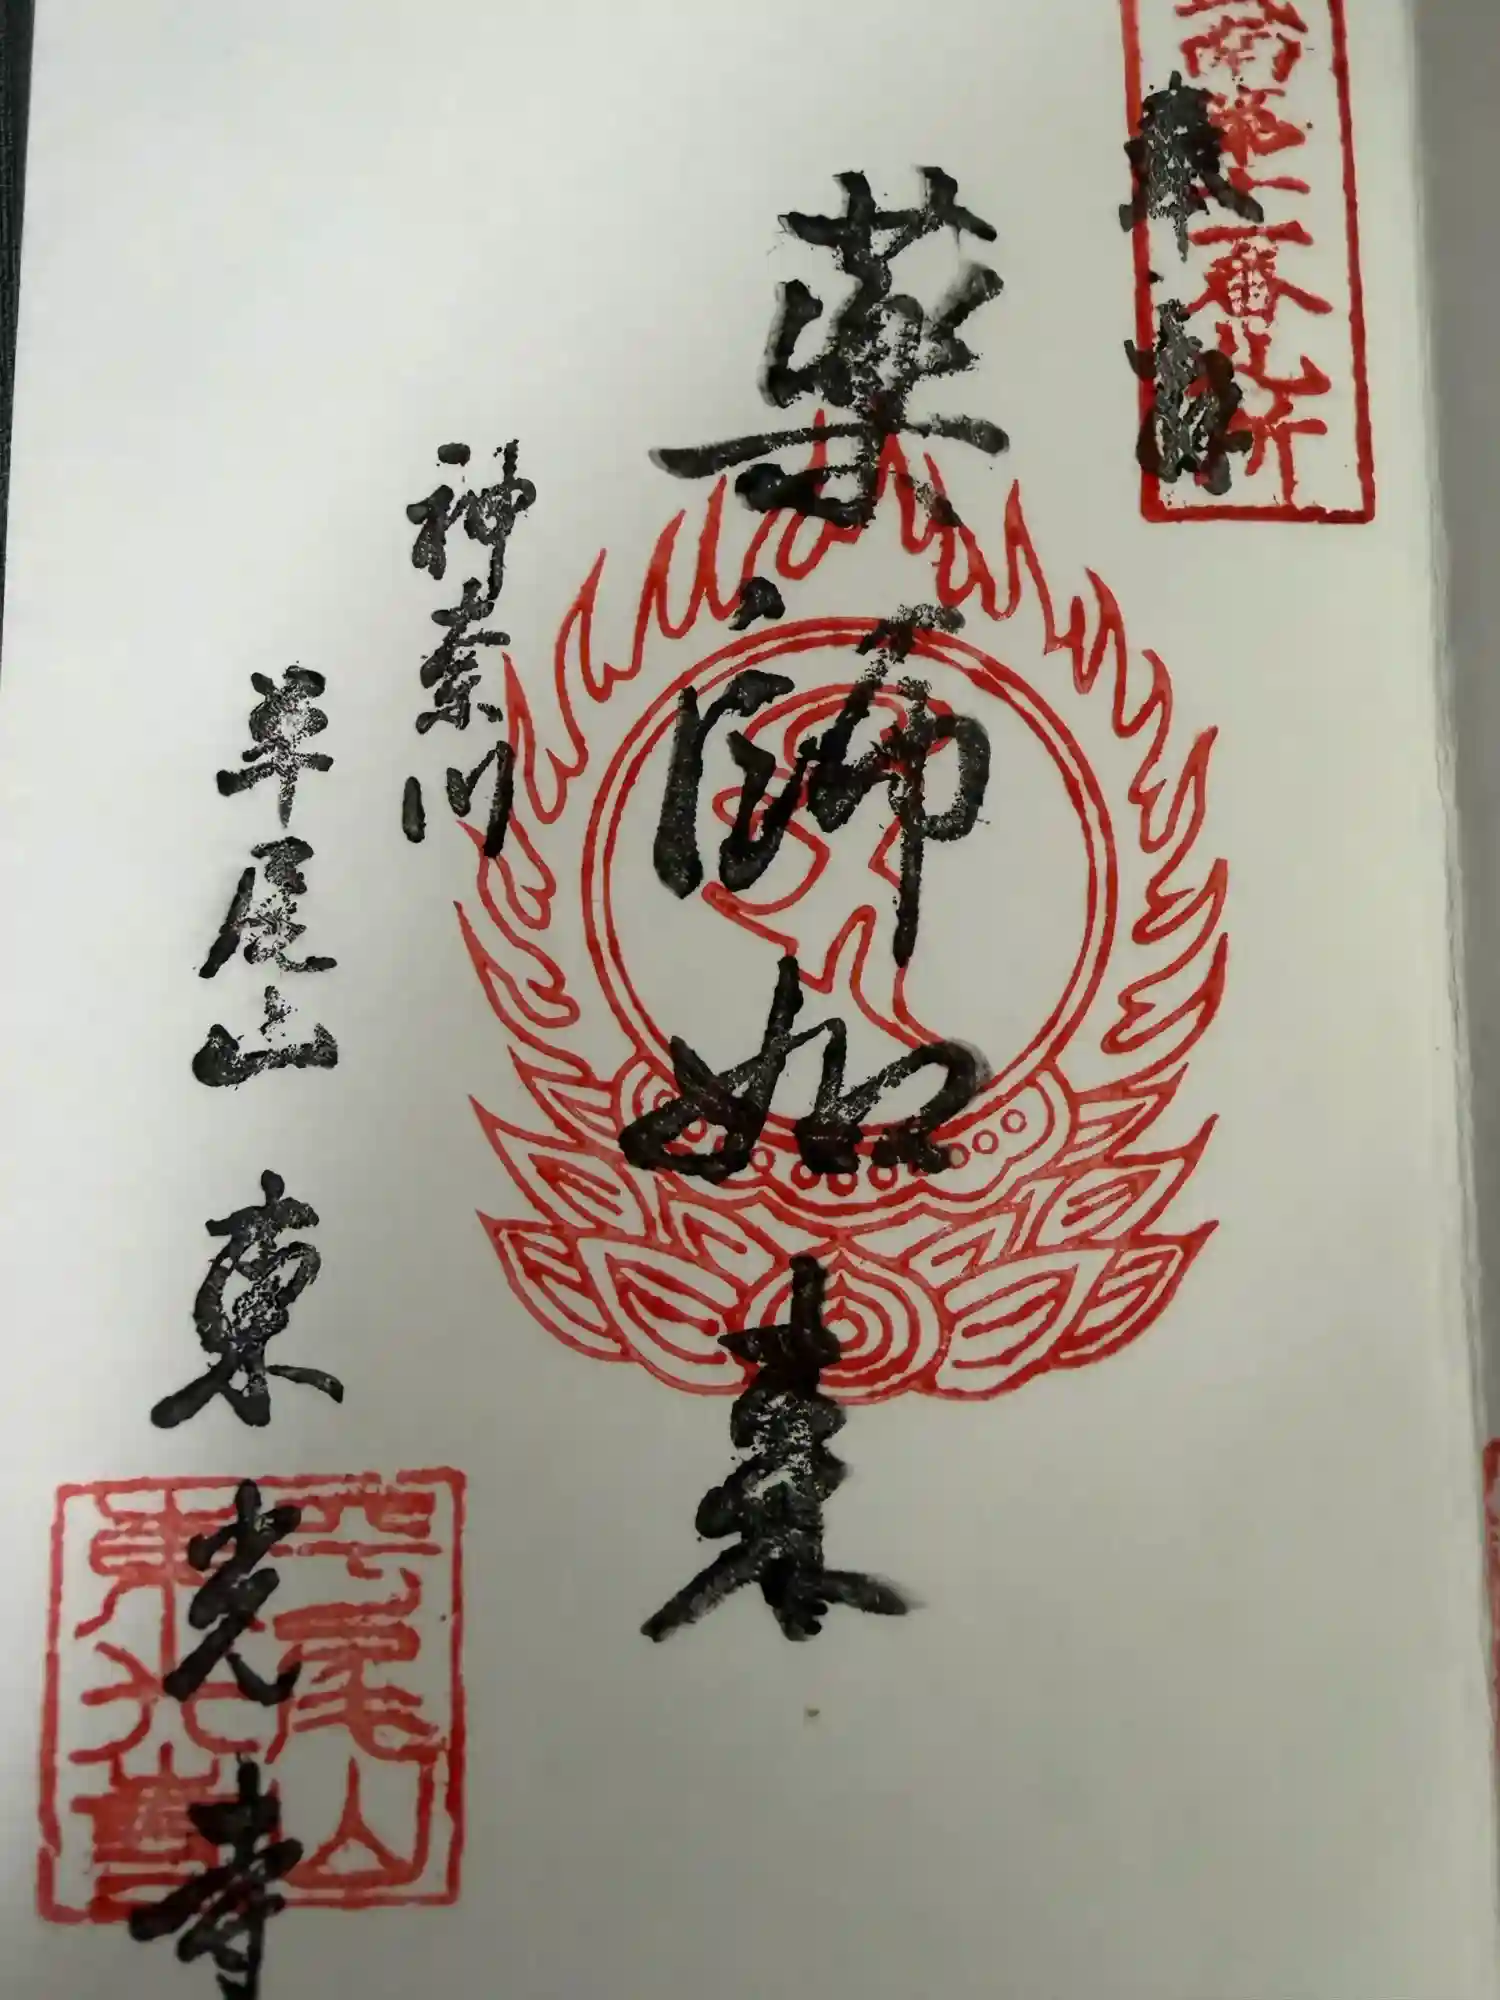 南第一番札所
奉拝
薬師如来
神奈川
平尾山 東光寺
平尾山
東光寺